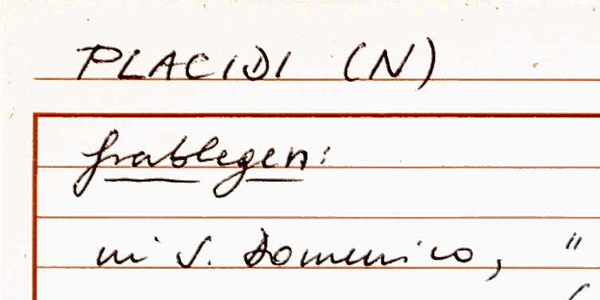 PLACIDI (N)
Grablegen:
in S. Domenico, "